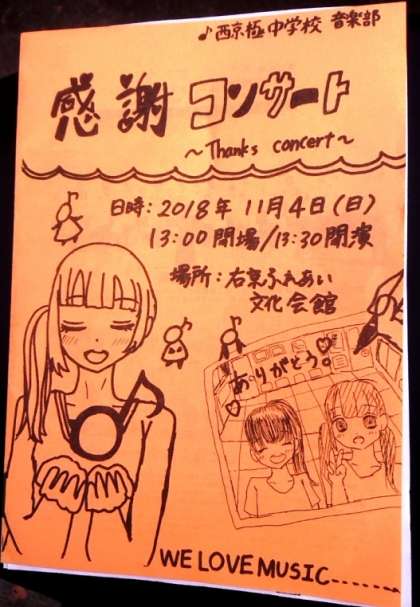 ♪西京極中学校 音楽部
感謝コンサート
~Thanks concert~
日時:2018年 11月4日(日)
13:00開場/13:30開演
場所:右京ふれあい
文化会館
ありがとう。
WE LOVE MUSIC........